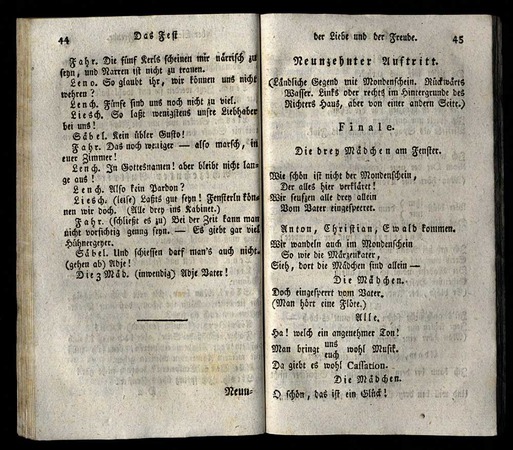 44 Das Fest
Fahr. Die fünf Kerls scheinen mir närrisch zu
seyn, und Narren ist nicht zu trauen.
Leno. So glaubt ihr, wir können uns nicht
wehren?
Lench. Fünfe sind uns noch nicht zu viel.
Liesch. So laßt wenigstens unsre Liebhaber
bei uns!
Säbel. Kein übler Gusto!
Fahr. Das noch weniger — also marsch, in
euer Zimmer!
Lench. In Gottesnamen! aber bleibt nicht lan-
ge aus!
Lench. Also kein Pardon?
Liesch. (leise) Laßts gut seyn! Fensterln kön-
nen wir doch. (Alle drey ins Kabinet.)
Fahr. (schließt es zu) Bei der Zeit kann man
nicht vorsichtig genug seyn. — Es giebt gar viel
Hühnergeyer.
Säbel. Und schiessen darf man's auch nicht.
(gehen ab) Adje!
Die 3 Mäd. (inwendig) Adje Vater!
Neun-
der Liebe und der Freude. 45
Neunzehnter Auftritt.
(Ländliche Gegend mit Mondenschein. Rückwärts
Wasser. Links oder rechts im Hintergrunde des
Richters Haus, aber von einer andern Seite.)
Finale.
Die drey Mädchen am Fenster.
Wie schön ist nicht der Mondenschein,
Der alles hier verklärt!
Wir seufzen alle drey allein
Vom Vater eingesperret.
Anton, Christian, Ewald kommen.
Wir wandeln auch im Mondenschein
So wie die Märzenkater,
Sieh, dort die Mädchen sind allein —
Die Mädchen.
Doch eingesperrt vom Vater.
(Man hört eine Flöte.)
Alle.
Ha! welch ein angenehmer Ton!
Man bringt uns euch wohl Musik.
Da giebt es wohl Cassation.
Die Mädchen.
O schön, das ist ein Glück!